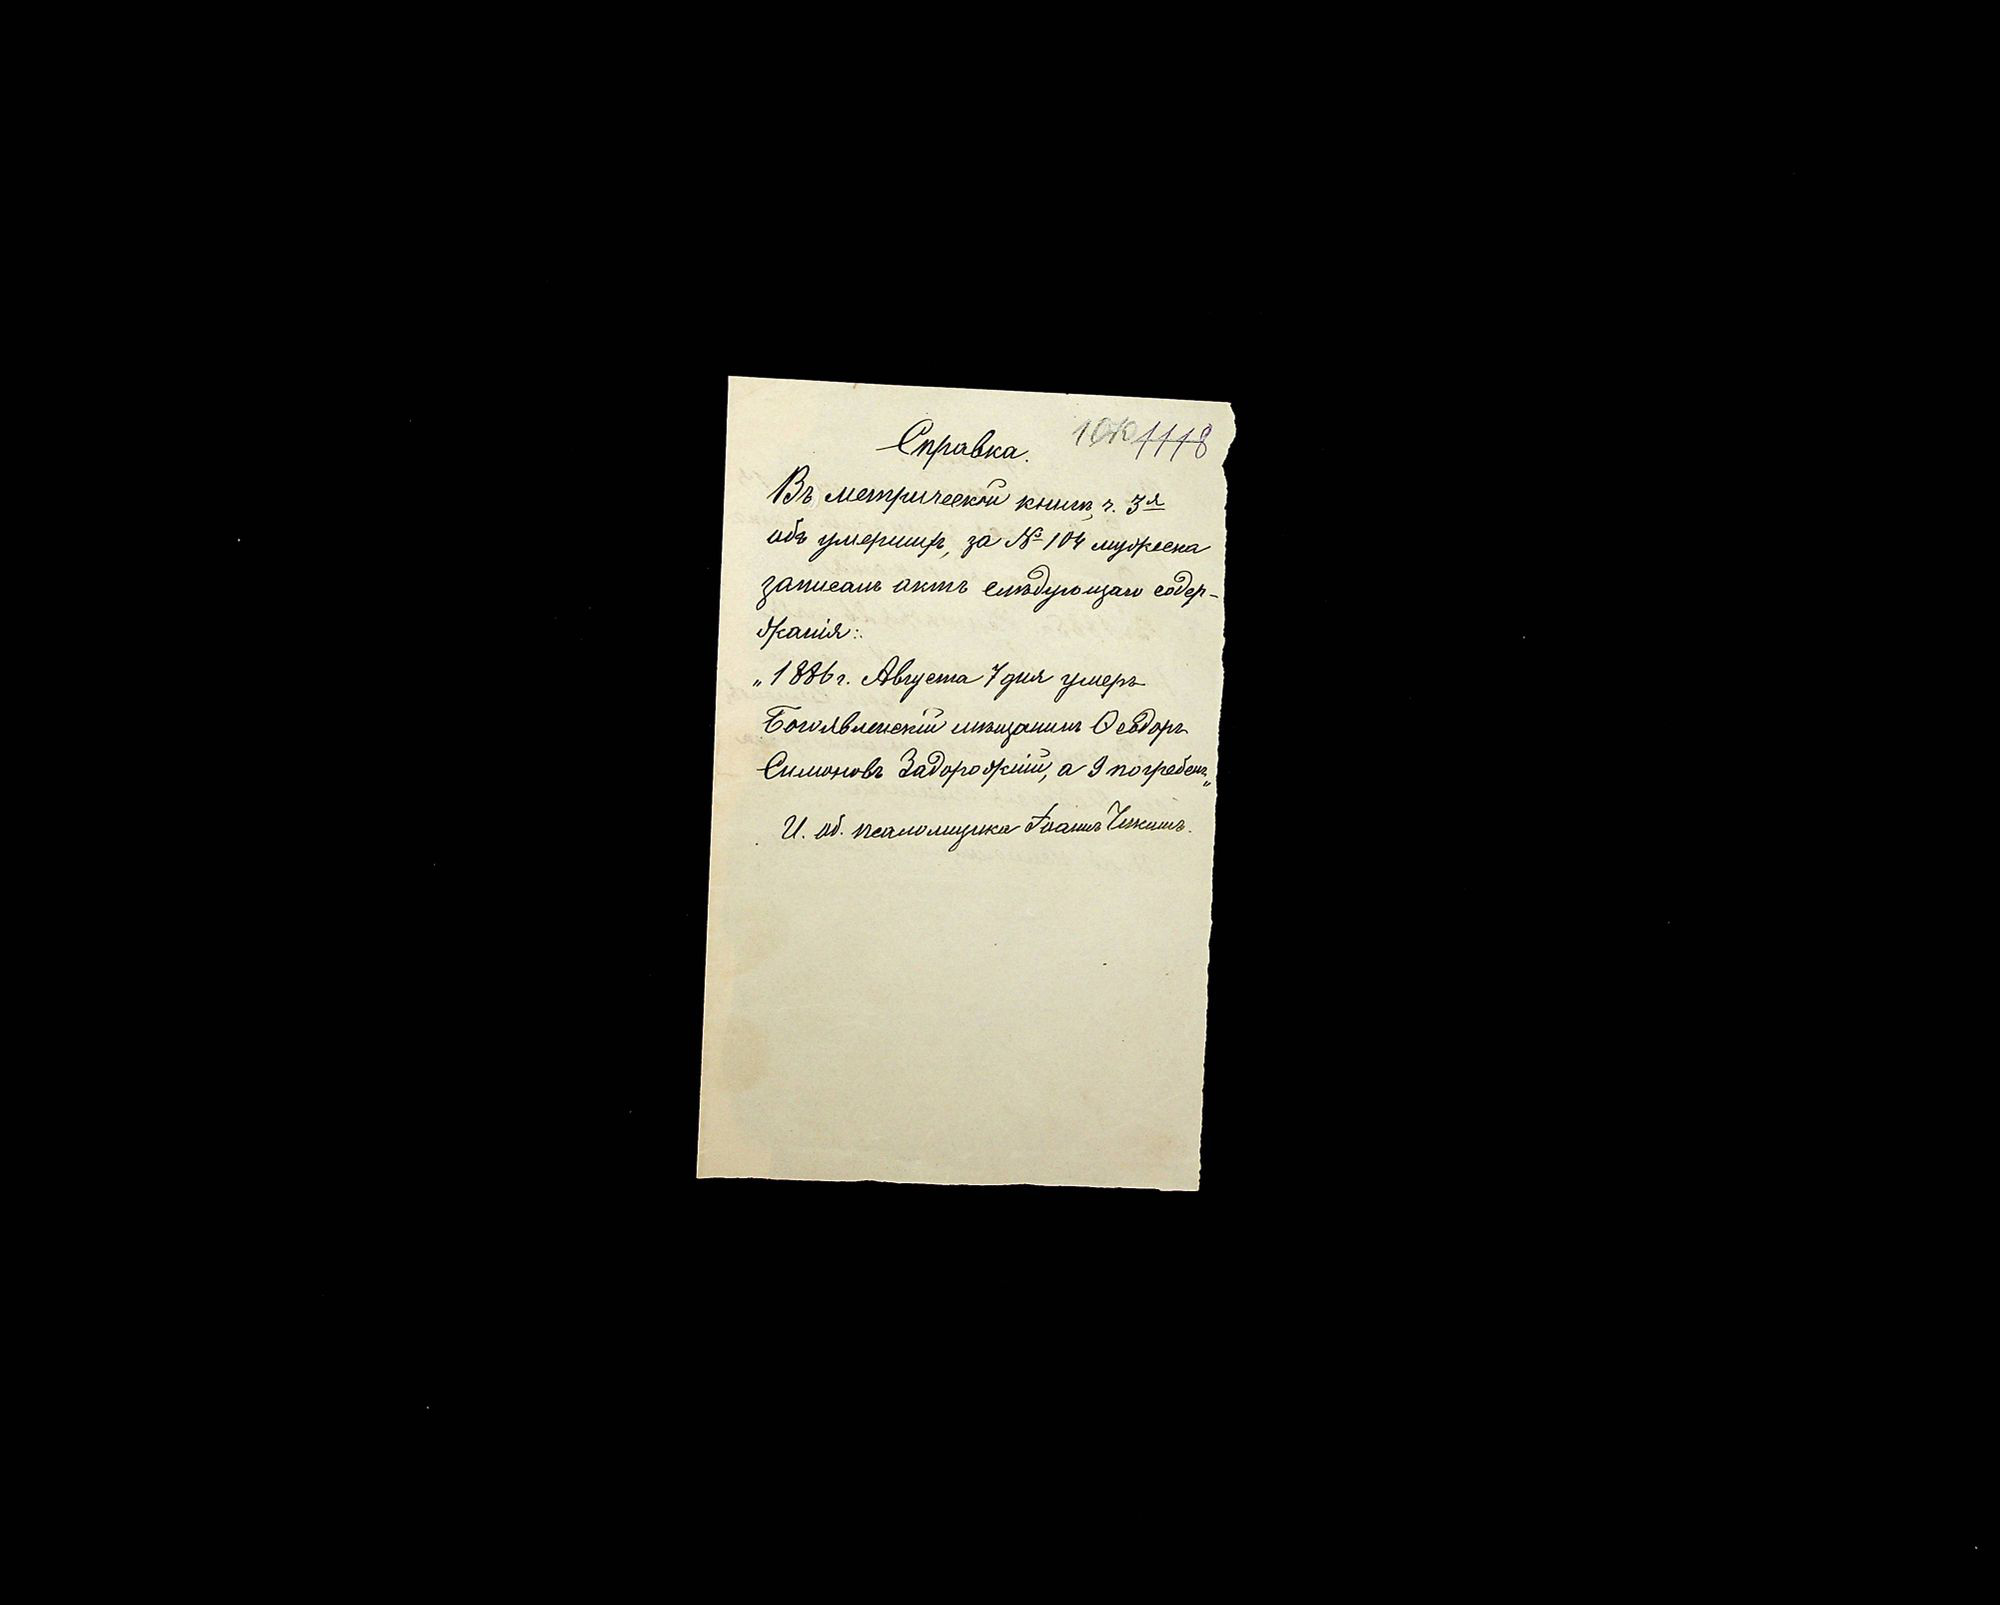 Справка.
1118
Въ метрической книгѣ, ч. 3я
объ умершихъ, за № 104 мужеска
записанъ актъ слѣдующаго содер-
жанія:
„1886 г. Августа 7 дня умеръ
Богоявленскій мѣщанинъ Ѳеодоръ
Симоновъ Задорожній, а 9 погребенъ„
И. об. псаломщика Іоаннъ